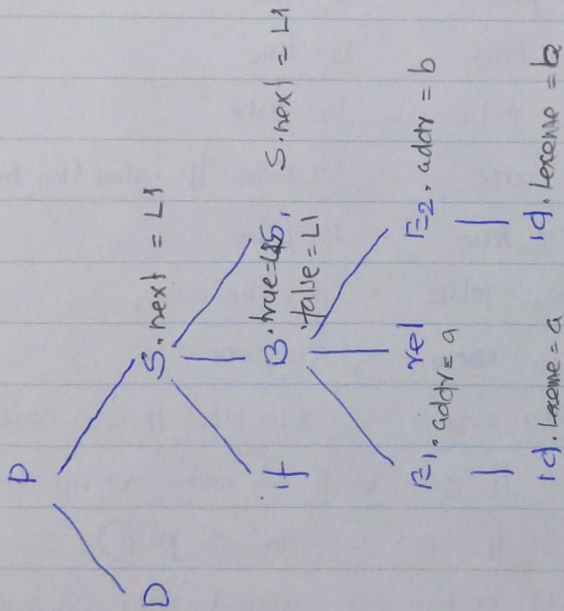 P
D S.next = L1
if B.true=L2 S1 S.next = L1
.false = L1
E1.addr = a rel E2.addr = b
id.lexeme = a id.lexeme = b